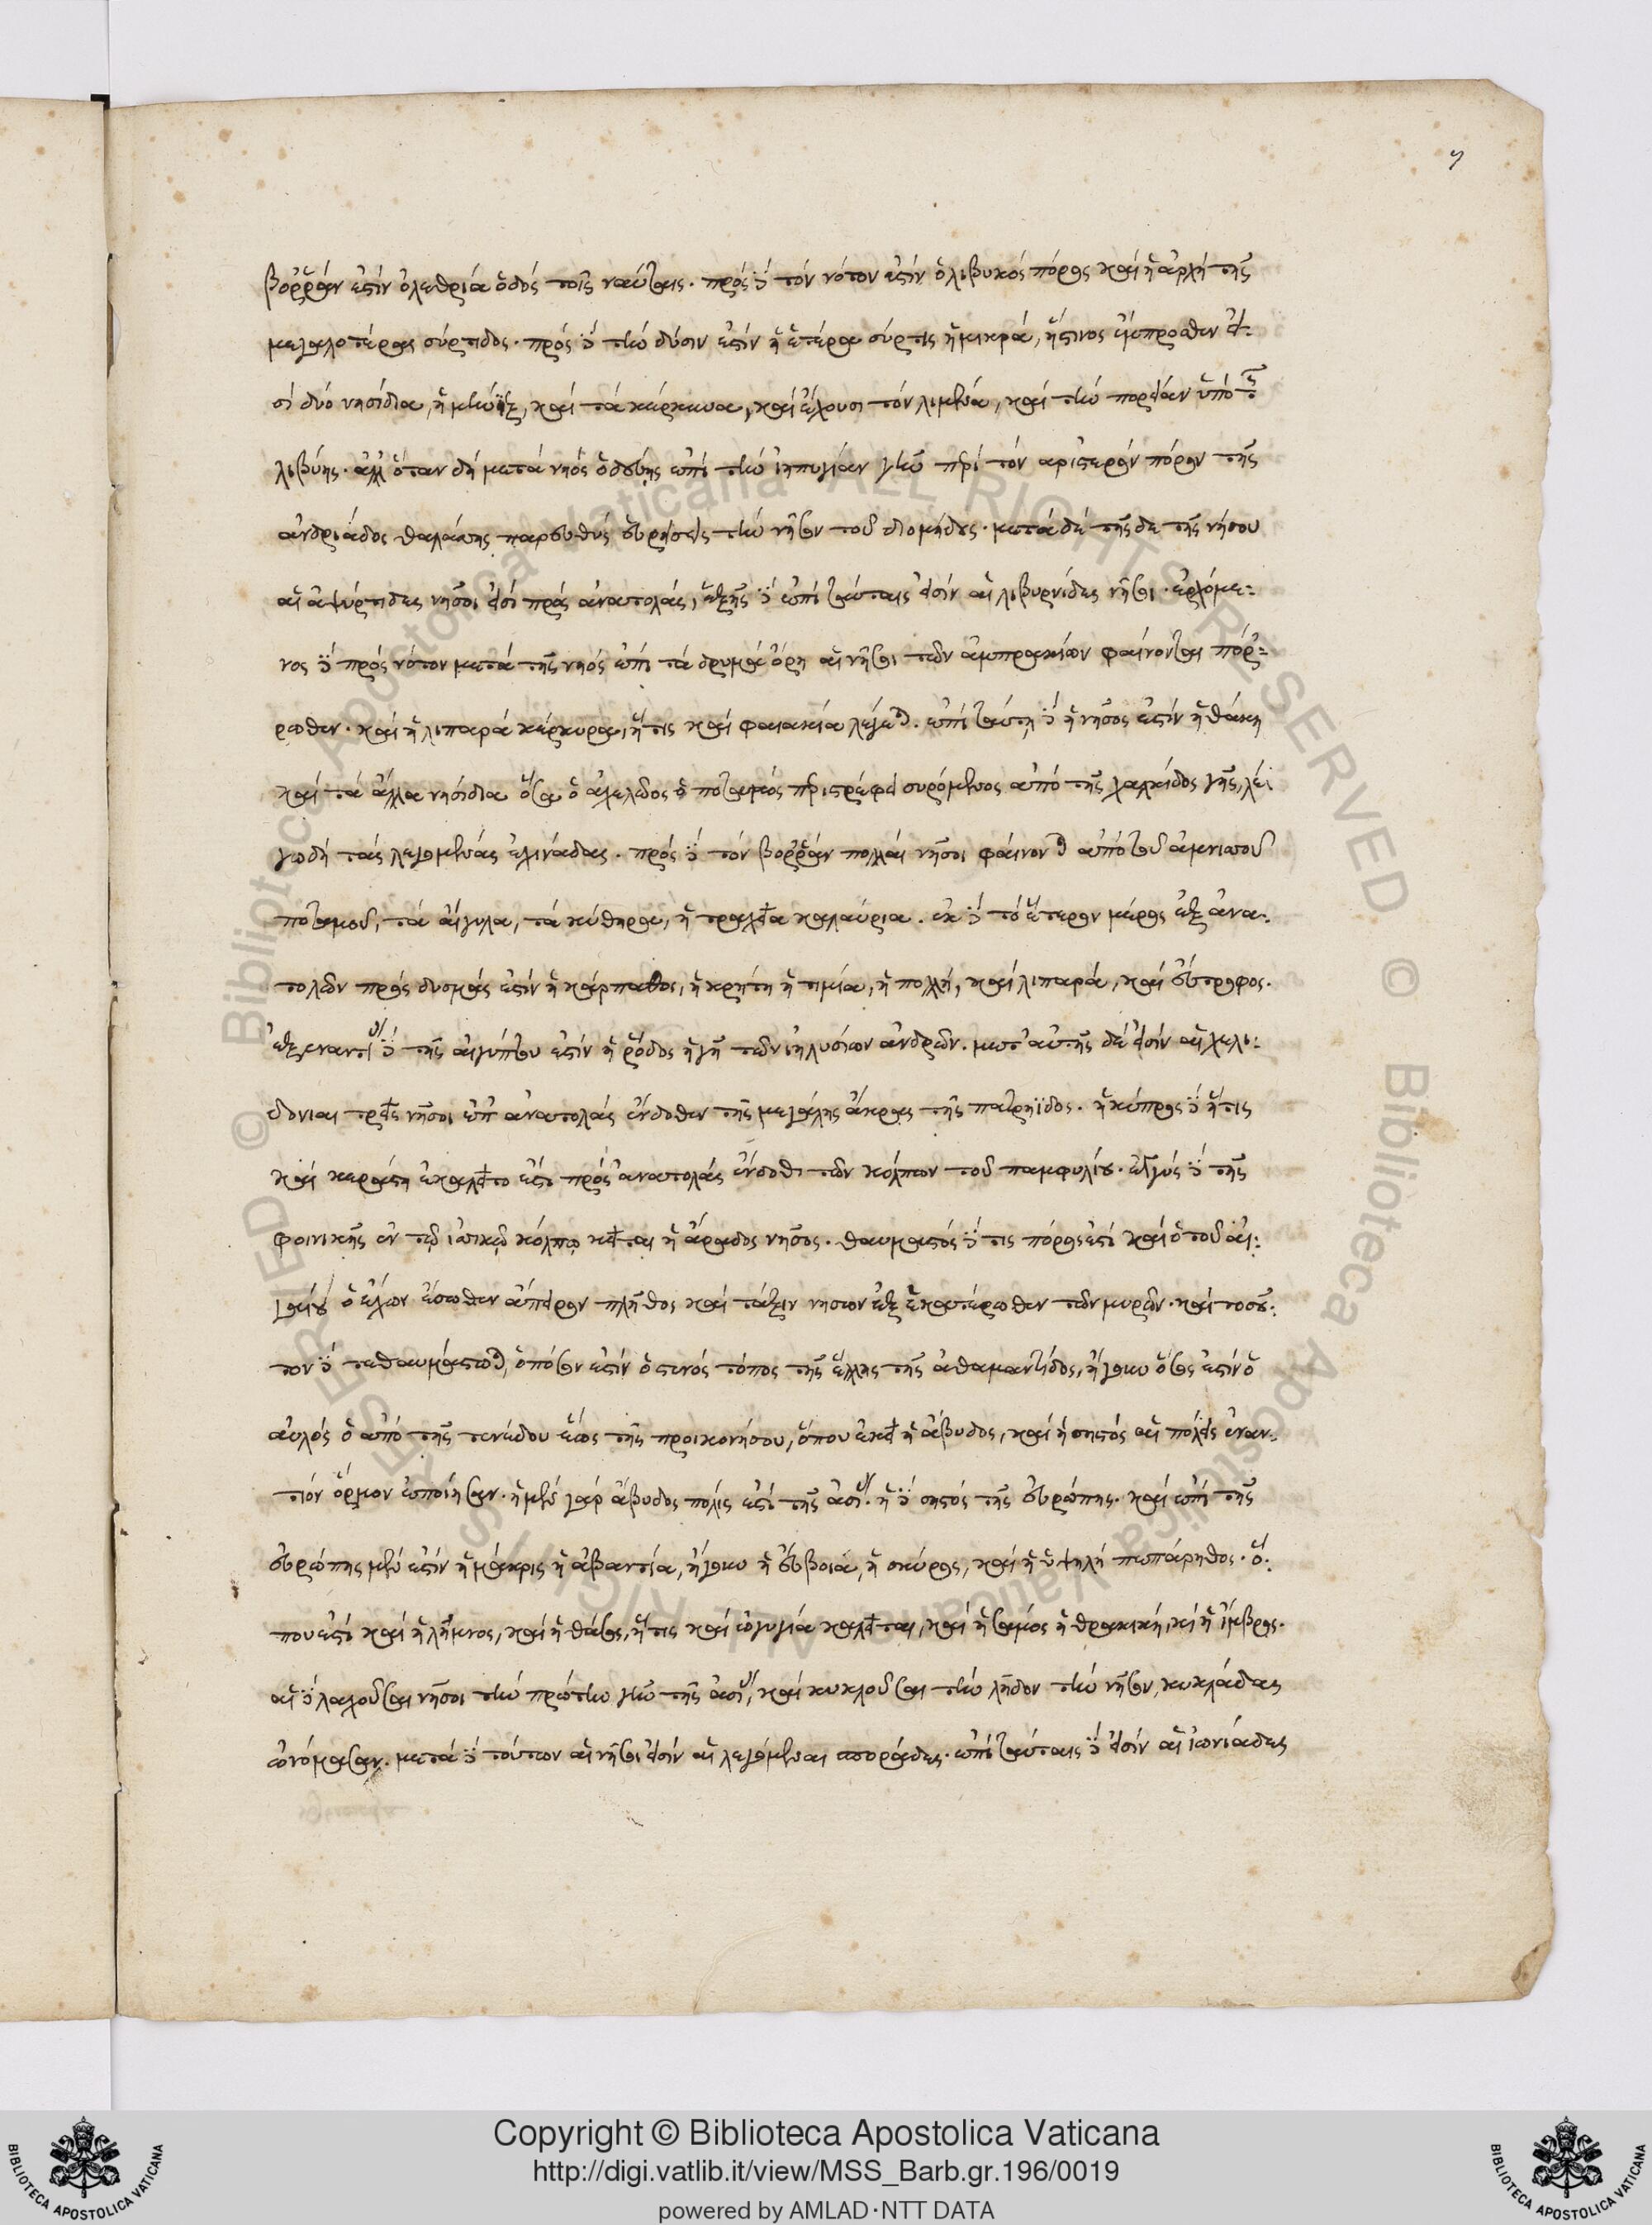 9
βορρᾶν ἐστὶν ὀλεθρία ὁδὸς τοῖς ναύταις. πρὸς δὲ τὸν νότον ἐστὶν ὁ λιβυκὸς πόρος καὶ ἡ ἀρχὴ τῆς
μεγαλοτέρας σύρτιδος. πρὸς δὲ τὴν δύσιν ἐστὶν ἡ ἑτέρα σύρτις ἡ μικρά, ἧστινος ἔμπροσθεν εἰ-
σὶ δύο νησίδια, ἡ μῆνιξ, καὶ τὰ κέρκινα, καὶ ἔχουσι τὸν λιμένα, καὶ τὴν πορείαν ὑπὸ τῆς
λιβύης. ἀλλ' ὅταν δὴ μετὰ νηὸς ὁδεύῃς ἐπὶ τὴν ἰηπυγίαν γῆν περὶ τὸν ἀριστερὸν πόρον τῆς
ἀνδριάδος θαλάσσης παρευθὺς εὑρήσεις τὴν νῆσον τοῦ διομήδους. μετὰ δὲ τῆς δε τῆς νήσου
αἱ ἀψύρτιδες νῆσοι εἰσὶ πρὸς ἀνατολάς, ἑξῆς δὲ ἐπὶ ταύταις εἰσὶν αἱ λιβυρνίδες νῆσοι. ἐρχόμε-
νος δὲ πρὸς νότον μετὰ τῆς νηὸς ἐπὶ τὰ δρυμὰ ὄρη αἱ νῆσοι τῶν ἀμπρακίων φαίνονται πόρ-
ρωθεν. καὶ ἡ λιπαρὰ κέρκυρα, ἥτις καὶ φαιακία λέγεται. ἐπὶ ταύτη δὲ ἡ νῆσος ἐστὶν ἡ θάκη
καὶ τὰ ἄλλα νησίδια ὅσα ὁ ἀχελῷος ὁ ποταμὸς περιστρέφει συρόμενος ἀπὸ τῆς χαλκίδος γῆς, λέ
γω δὴ τὰς λεγομένας ἐχινάδας. πρὸς δὲ τὸν βορρᾶν πολλαὶ νῆσοι φαίνονται ἀπὸ τοῦ ἀμνισοῦ
ποταμοῦ, τὰ αἴγιλα, τὰ κύθηρα, ἡ τραχεῖα καλαύρια. εἰς δὲ τὸ ἕτερον μέρος ἐξ ἀνα-
τολῶν πρὸς δυσμὰς ἐστὶν ἡ κάρπαθος, ἡ κρήτη ἡ τιμία, ἡ πολλή, καὶ λιπαρά, καὶ εὔτροφος.
ἐξεναντίας δὲ τῆς αἰγύπτου ἐστὶν ἡ ῥόδος ἡ γῆ τῶν ἰηλυσίων ἀνδρῶν. μετ' αὐτῆς δὲ εἰσὶν αἱ χελι-
δονίαι τρεῖς νῆσοι ἐπ' ἀνατολὰς ἔνδοθεν τῆς μεγάλης ἄκρας τῆς παtρηΐδος. ἡ κύπρος δὲ ἥτις
καὶ κεράστη ἐκαλεῖτο ἐστὶ πρὸς ἀνατολὰς ἔνδοθι τῶν κόλπων τοῦ παμφυλίου. ἐγγὺς δὲ τῆς
φοινίκης ἐν τῷ ἰσικῷ κόλπῳ κεῖται ἡ ἄραδος νῆσος. θαυμαστὸς δὲ τις πόρος ἐστὶ καὶ ὁ τοῦ αἰ-
γαίου ὁ ἔχων ἔσωθεν ἄπειρον πλῆθος καὶ τάξιν νήσων ἐξ ἑκατέρωθεν τῶν μερῶν. καὶ τοσοῦ-
τον δὲ τεθαυμάστωται, ὁπόσον ἐστὶν ὁ στενὸς τόπος τῆς ἕλλης τῆς ἀθαμαντίδος, ἤγουν ὅσος ἐστὶν ὁ
αὐλὸς ὁ ἀπὸ τῆς τενέδου ἕως τῆς προικονήσου, ὅπου ἐκεῖ ἡ ἄβυδος, καὶ ἡ σηστὸς αἱ πόλεις ἐναν-
τίον ὅρμον ἐποίησαν. ἡ μὲν γὰρ ἄβυδος πόλις ἐστὶ τῆς ἀσίας. ἡ δὲ σηστὸς τῆς εὐρώπης. καὶ ἐπὶ τῆς
εὐρώπης μὲν ἐστὶν ἡ μάκρις ἡ ἀβαντία, ἤγουν ἡ εὔβοια, ἡ σκύρος, καὶ ἡ ὑψηλὴ πεπάρηθος. ὅ-
που ἐστὶ καὶ ἡ λῆμνος, καὶ ἡ θάσος, ἥτις καὶ ὠγυγία καλεῖται, καὶ ἡ σάμος ἡ θρακική, καὶ ἡ ἴμβρος.
αἱ δὲ λαχοῦσαι νῆσοι τὴν πρώτην γῆν τῆς ἀσίας, καὶ κυκλοῦσαι τὴν δῆλον τὴν νῆσον, κυκλάδας
ὠνόμασαν. μετὰ δὲ τούτων αἱ νῆσοι εἰσὶν αἱ λεγόμεναι σποράδες. ἐπὶ ταύταις δὲ εἰσὶν αἱ ἰωνιάδες
Copyright © Biblioteca Apostolica Vaticana
http://digi.vatlib.it/view/MSS_Barb.gr.196/0019
powered by AMLAD·NTT DATA
BIBLIOTECA APOSTOLICA VATICANA
BIBLIOTECA APOSTOLICA VATICANA
© Biblioteca Apostolica Vaticana ALL RIGHTS RESERVED © Biblioteca Apostolica Vaticana ALL RIGHTS RESERVED